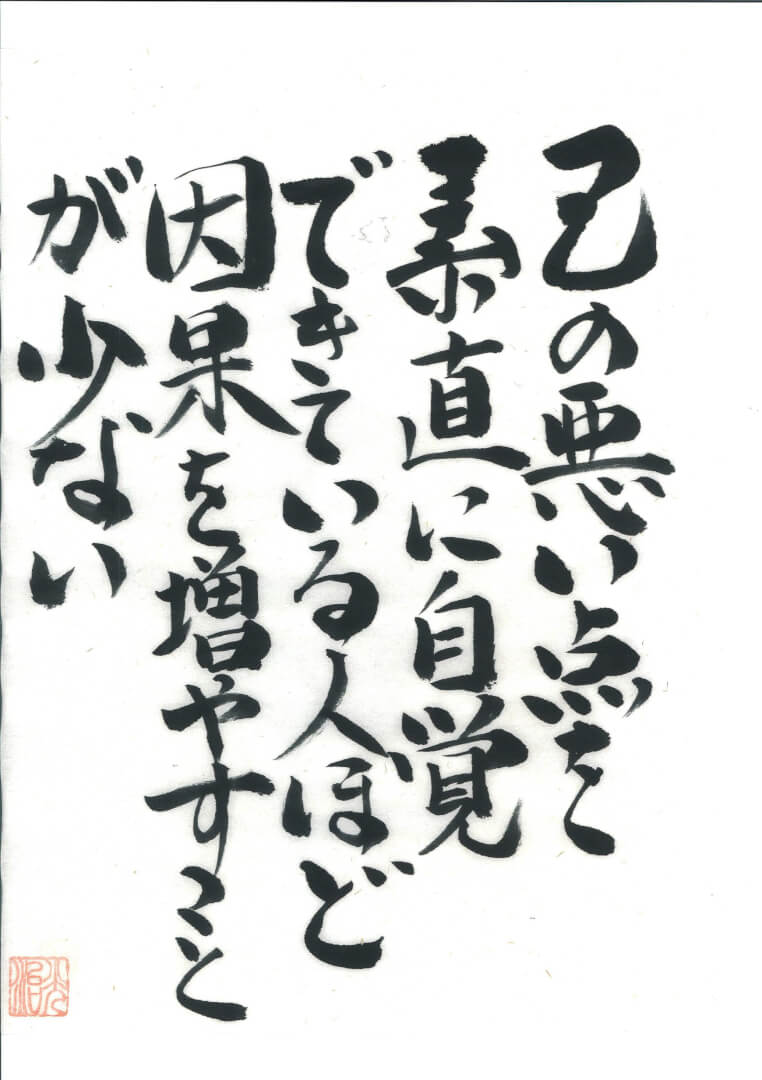 己の悪い点を
素直に自覚
できている人ほど
因果を増やすこと
が少ない